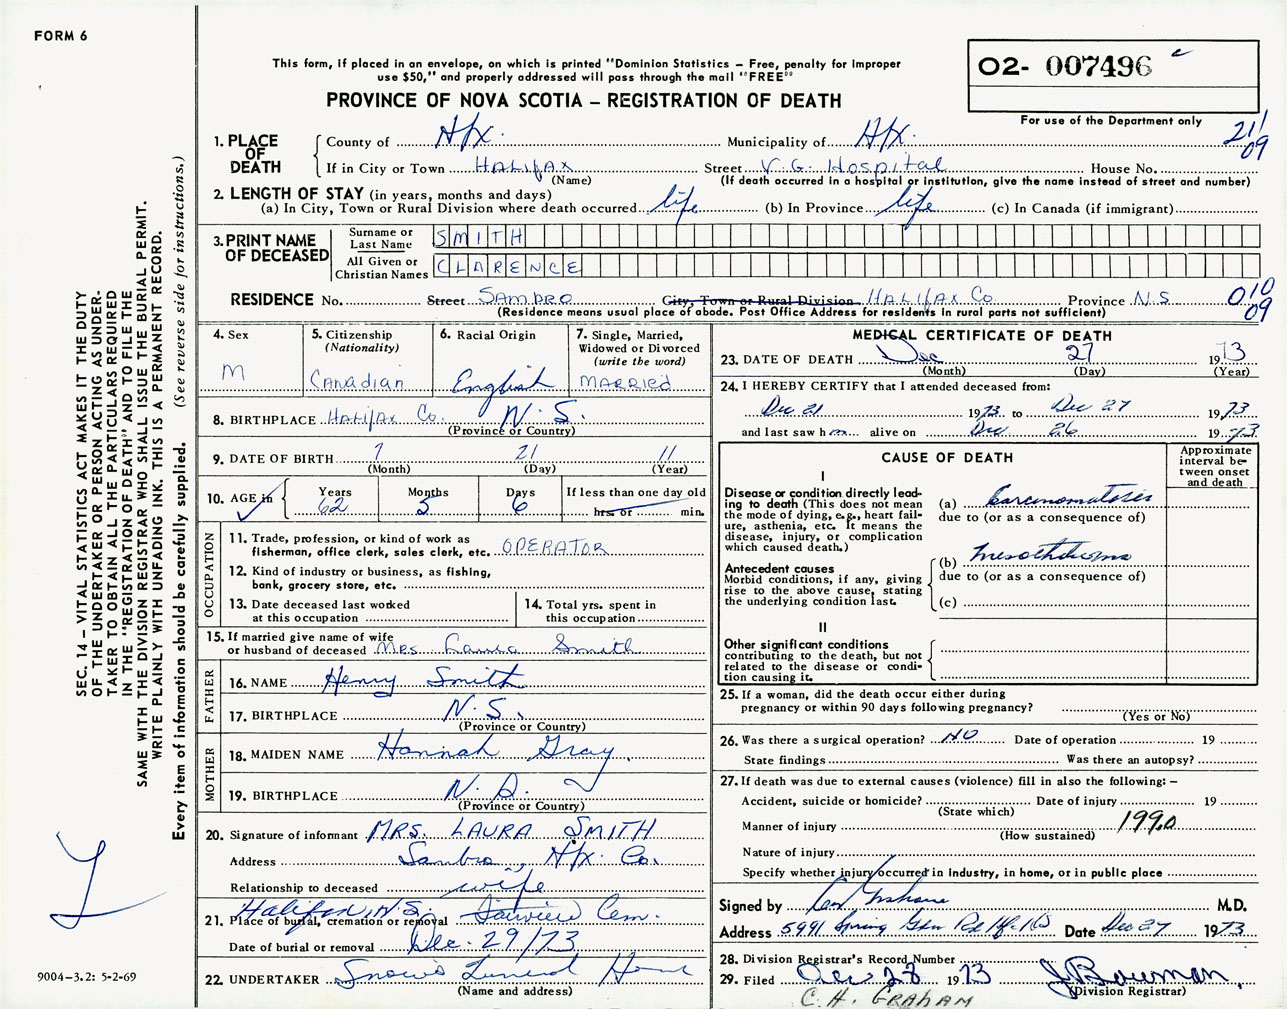 FORM 6
This form, if placed in an envelope, on which is printed "Dominion Statistics – Free, penalty for improper
use $50," and properly addressed will pass through the mail "FREE"
PROVINCE OF NOVA SCOTIA – REGISTRATION OF DEATH
02- 007496 c
For use of the Department only
211
09
1. PLACE OF DEATH
County of Hfx. Municipality of Hfx.
If in City or Town HALIFAX (Name) Street V.G. Hospital House No.
(If death occurred in a hospital or institution, give the name instead of street and number)
2. LENGTH OF STAY (in years, months and days)
(a) In City, Town or Rural Division where death occurred life (b) In Province life (c) In Canada (if immigrant)
3. PRINT NAME OF DECEASED
Surname or Last Name SMITH
All Given or Christian Names CLARENCE
RESIDENCE No. Street SAMBRO City, Town or Rural Division HALIFAX Co. Province N.S.
010
09
(Residence means usual place of abode. Post Office Address for residents in rural parts not sufficient)
4. Sex M
5. Citizenship (Nationality) Canadian
6. Racial Origin English
7. Single, Married, Widowed or Divorced (write the word) MARRIED
8. BIRTHPLACE HALIFAX Co. N.S.
(Province or Country)
9. DATE OF BIRTH 7 21 11
(Month) (Day) (Year)
10. AGE in Years 62 Months 5 Days 6 If less than one day old hrs. or min.
OCCUPATION
11. Trade, profession, or kind of work as fisherman, office clerk, sales clerk, etc. OPERATOR
12. Kind of industry or business, as fishing, bank, grocery store, etc.
13. Date deceased last worked at this occupation
14. Total yrs. spent in this occupation
15. If married give name of wife or husband of deceased Mrs. Laura Smith
FATHER
16. NAME Henry Smith
17. BIRTHPLACE N.S.
(Province or Country)
MOTHER
18. MAIDEN NAME Hannah Gray
19. BIRTHPLACE N.S.
(Province or Country)
20. Signature of informant MRS. LAURA SMITH
Address Sambro, Hfx. Co.
Relationship to deceased wife
21. Place of burial, cremation or removal Halifax, N.S. Fairview Cem.
Date of burial or removal Dec. 29/73
22. UNDERTAKER Snow's Funeral Home
(Name and address)
MEDICAL CERTIFICATE OF DEATH
23. DATE OF DEATH Dec 27 1973
(Month) (Day) (Year)
24. I HEREBY CERTIFY that I attended deceased from:
Dec 21 1973 to Dec 27 1973
and last saw him alive on Dec 26 1973
CAUSE OF DEATH
Approximate interval between onset and death
I
Disease or condition directly leading to death (This does not mean the mode of dying, e.g., heart failure, asthenia, etc. It means the disease, injury, or complication which caused death.)
(a) Carcinomatosis
due to (or as a consequence of)
Antecedent causes
Morbid conditions, if any, giving rise to the above cause, stating the underlying condition last.
(b) Mesothelioma
due to (or as a consequence of)
(c)
II
Other significant conditions contributing to the death, but not related to the disease or condition causing it.
25. If a woman, did the death occur either during pregnancy or within 90 days following pregnancy?
(Yes or No)
26. Was there a surgical operation? NO Date of operation 19
State findings Was there an autopsy?
27. If death was due to external causes (violence) fill in also the following: –
Accident, suicide or homicide? Date of injury 19
(State which)
Manner of injury 1990
(How sustained)
Nature of injury
Specify whether injury occurred in industry, in home, or in public place
Signed by M.D.
Address 5991 Spring Gdn Rd Hfx NS Date Dec 27 1973
28. Division Registrar's Record Number
29. Filed Dec 28 1973 J Bowman
(Division Registrar)
C. H. GRAHAM
SEC. 14 – VITAL STATISTICS ACT MAKES IT THE DUTY
OF THE UNDERTAKER OR PERSON ACTING AS UNDER-
TAKER TO OBTAIN ALL THE PARTICULARS REQUIRED
IN THE "REGISTRATION OF DEATH" AND TO FILE THE
SAME WITH THE DIVISION REGISTRAR WHO SHALL ISSUE THE BURIAL PERMIT.
WRITE PLAINLY WITH UNFADING INK. THIS IS A PERMANENT RECORD.
Every item of information should be carefully supplied. (See reverse side for instructions.)
9004-3.2: 5-2-69